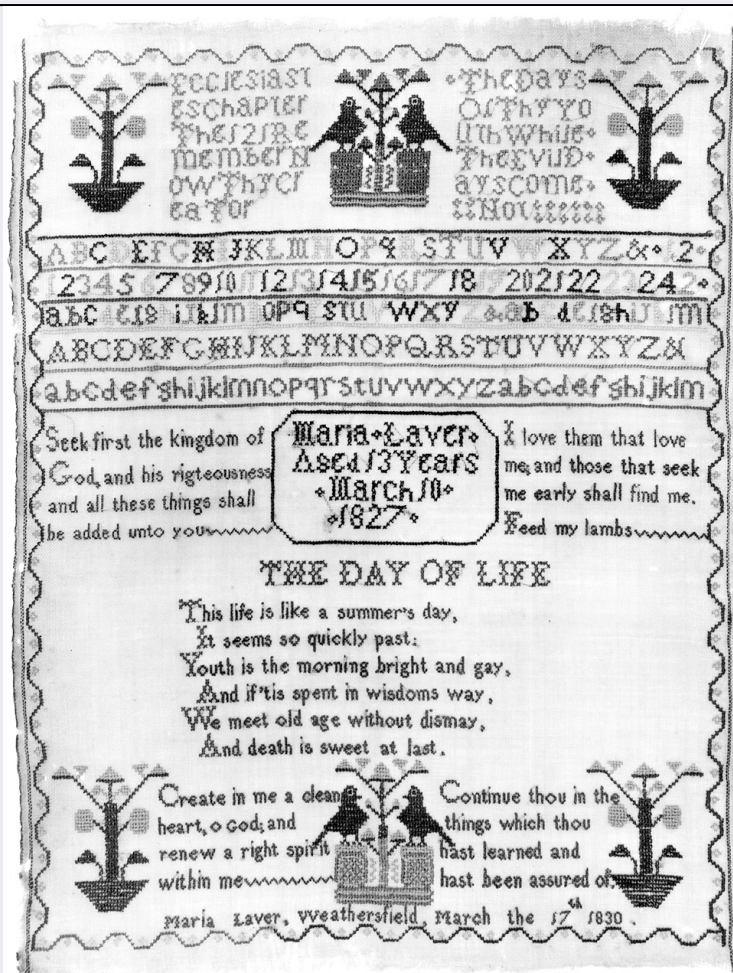 Ecclesiast
es Chapter
The 12 1 Re
member N
ow Thy Cr
eaTor
The Days
Of Thy Yo
uth While
The Evil D
ays come
Not
ABCDEFGHIJKLMNOPQRSTUVWXYZ& 12
1 2 3 4 5 6 7 8 9 10 11 12 13 14 15 16 17 18 19 20 21 22 23 24 2
abcdefg ijklm opq stu wxy z & ab defghijlm
ABCDEFGHIJKLMNOPQRSTUVWXYZ&
abcdefghijklmnopqrstuvwxyzabcdefghijklm
Seek first the kingdom of
God, and his rigteousness
and all these things shall
be added unto you
Maria Laver
Aged 13 Years
March 10
1827
I love them that love
me; and those that seek
me early shall find me.
Feed my lambs
THE DAY OF LIFE
This life is like a summer's day,
It seems so quickly past:
Youth is the morning bright and gay,
And if 'tis spent in wisdoms way,
We meet old age without dismay,
And death is sweet at last.
Create in me a clean
heart, o God; and
renew a right spirit
within me
Continue thou in the
things which thou
hast learned and
hast been assured of.
Maria Laver, Weathersfield, March the 17th 1830.